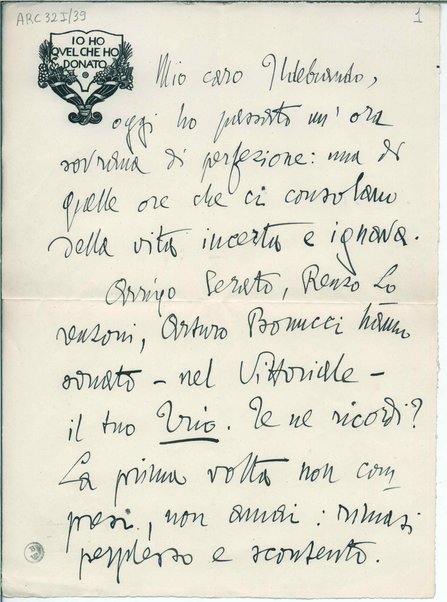 ARC 32 I/39
1
IO HO
QVEL CHE HO
DONATO
Mio caro Ildebrando,
oggi ho passato un' ora
sovrana di perfezione: una di
quelle ore che ci consolano
della vita incerta e ignava.
Arrigo Serato, Renzo Lo
renzoni, Arturo Bonucci hanno
sonato – nel Vittoriale –
il tuo Trio. Te ne ricordi?
La prima volta non com
presi, non amai: rimasi
perplesso e scontento.